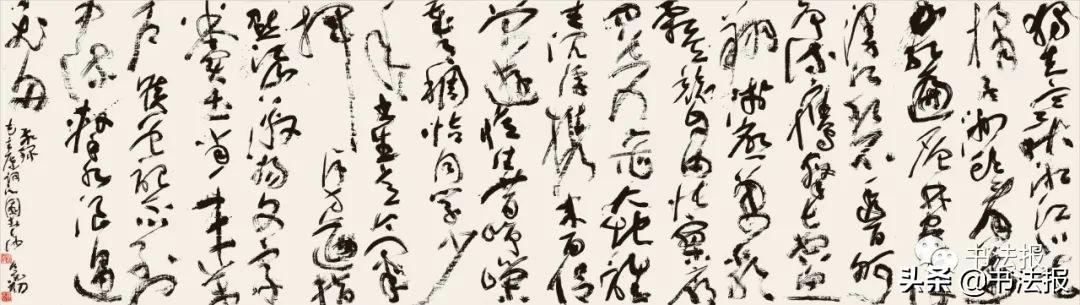 独立寒秋湘江北去
橘子洲头看万
山红遍层林尽染
漫江碧透百舸
争流鹰击长空鱼
翔浅底万类
霜天竞自由怅寥廓
问苍茫大地谁
主沉浮携来百侣
曾游忆往昔峥嵘
岁月稠恰同学少
年书生意气
挥斥方遒指
点江山激扬文字
粪土当年万
户侯曾记否到
中流击水浪遏
飞舟
毛主席词沁园春长沙
书法报
头条 @书法报